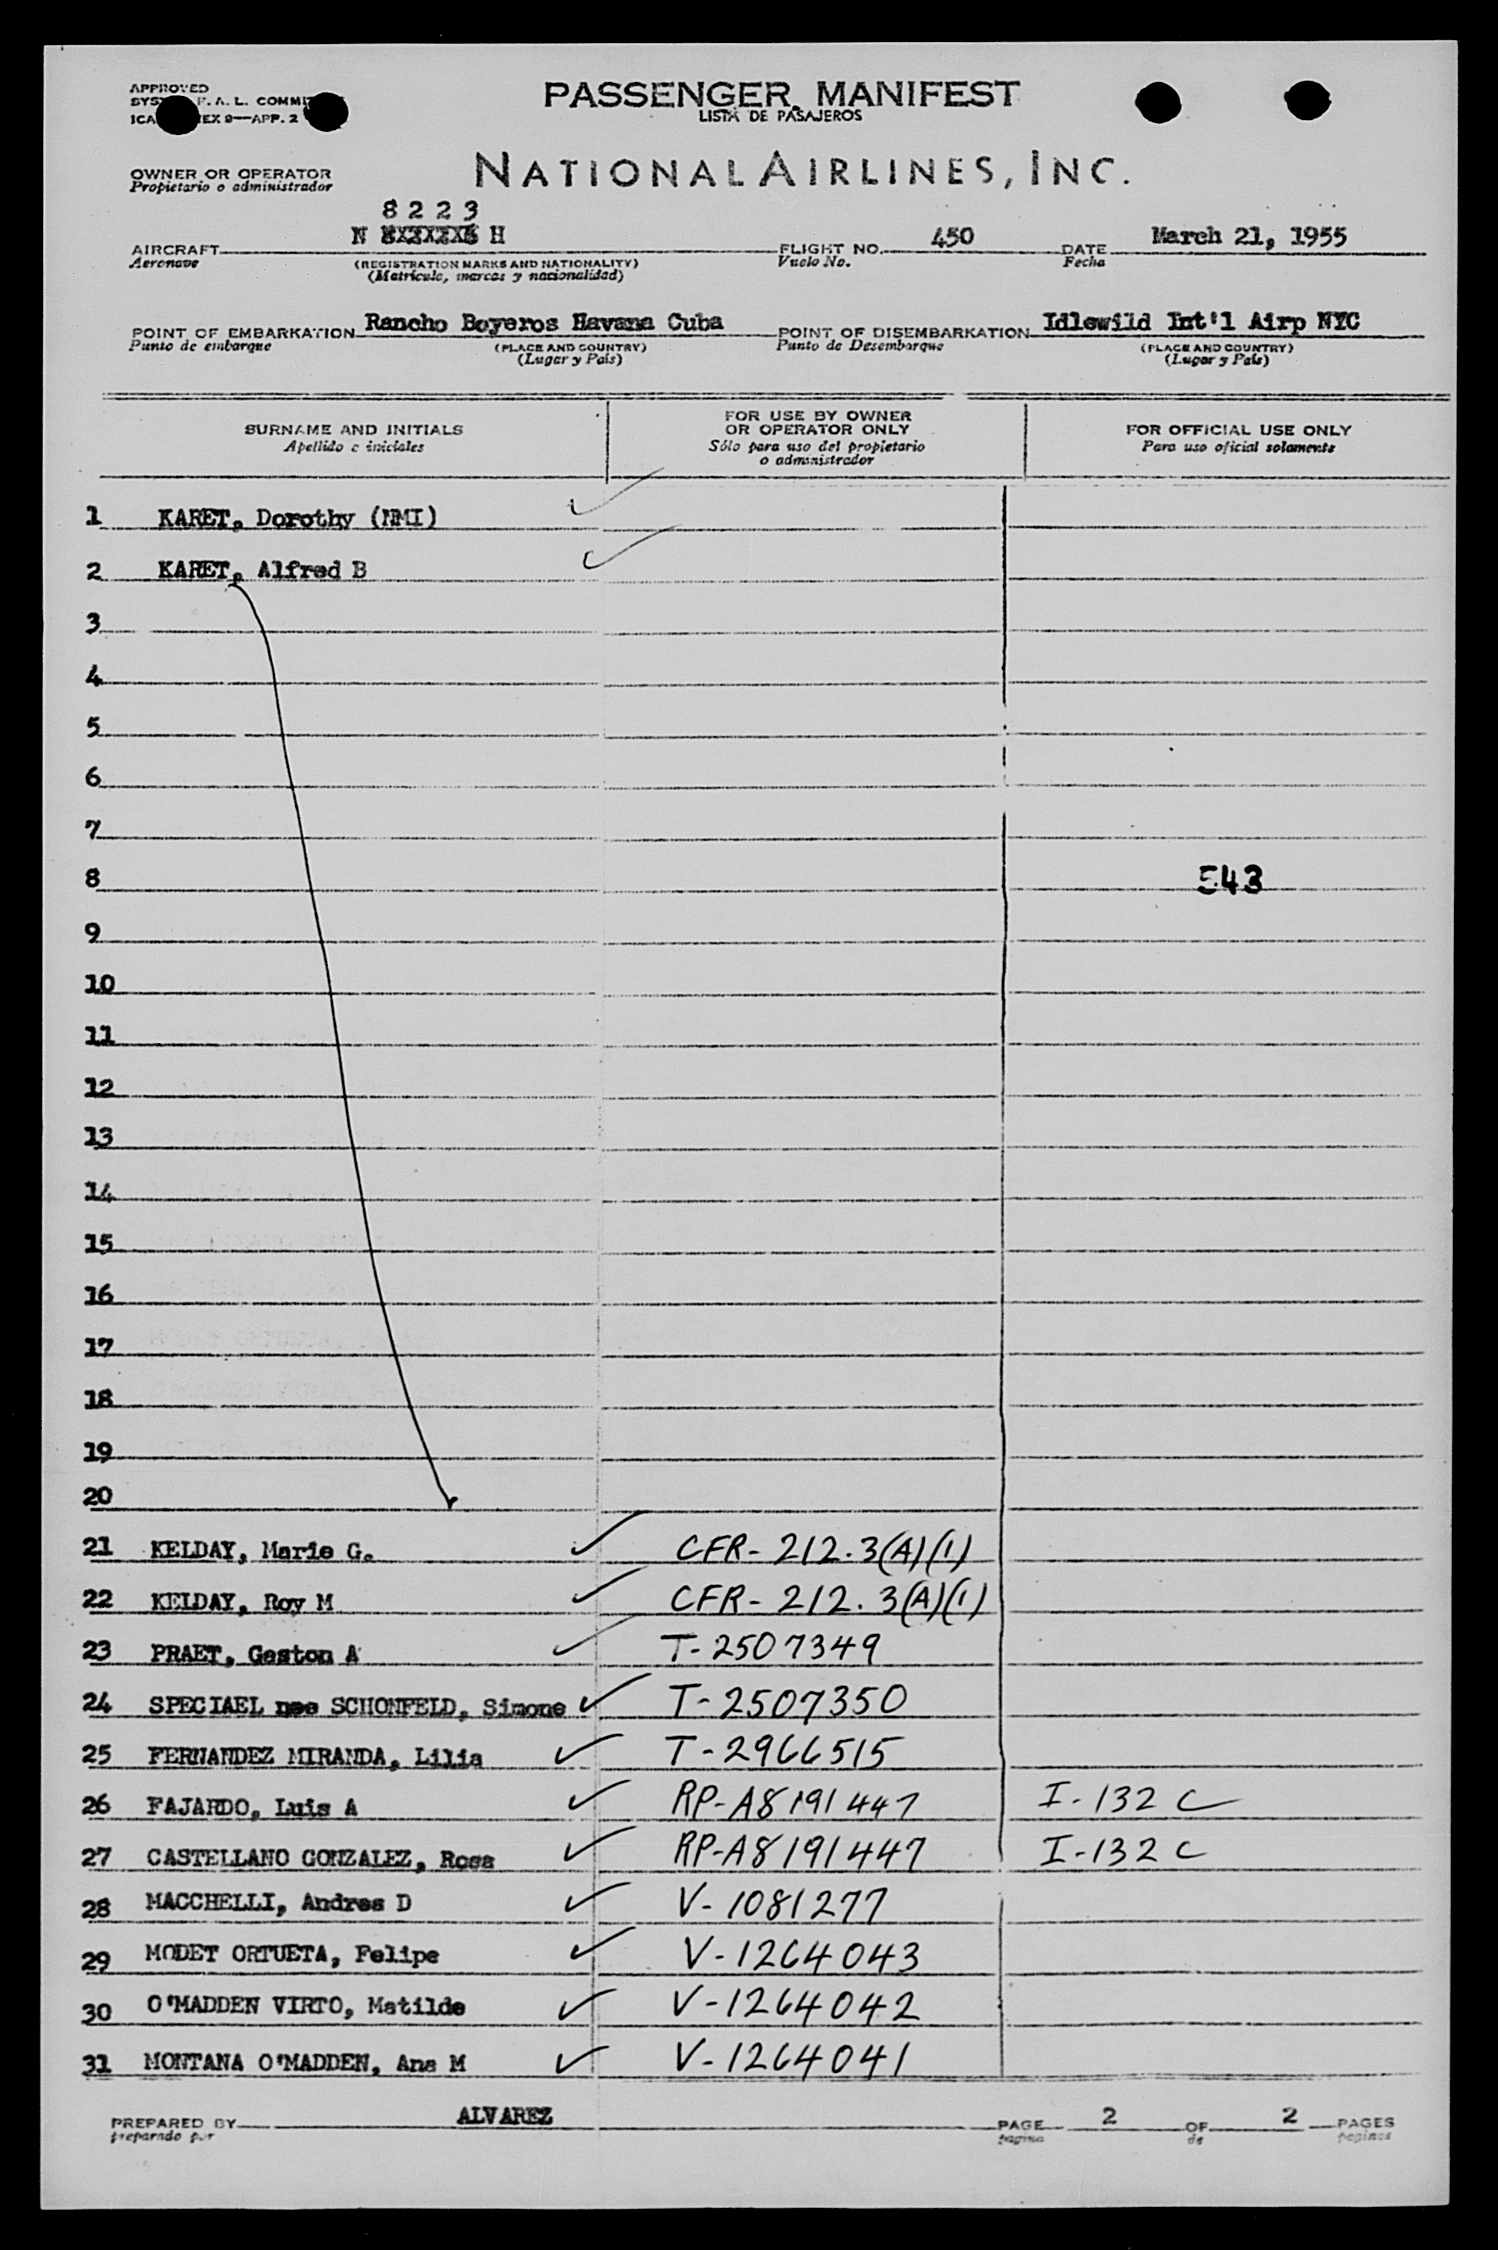 APPROVED
PASSENGER MANIFEST
LISTA DE PASAJEROS
F. A. L.
EX 9—APP. 2
OWNER OR OPERATOR
Propietario o administrador
NATIONAL AIRLINES, INC.
8 2 2 3
N H
AIRCRAFT
Aeronave
(REGISTRATION MARKS AND NATIONALITY)
(Matrícula, marcas y nacionalidad)
FLIGHT NO. 450
Vuelo No.
DATE March 21, 1955
Fecha
POINT OF EMBARKATION Rancho Boyeros Havana Cuba
Punto de embarque
(PLACE AND COUNTRY)
(Lugar y País)
POINT OF DISEMBARKATION Idlewild Int'l Airp NYC
Punto de Desembarque
(PLACE AND COUNTRY)
(Lugar y País)
SURNAME AND INITIALS
Apellido e iniciales
FOR USE BY OWNER
OR OPERATOR ONLY
Sólo para uso del propietario
o administrador
FOR OFFICIAL USE ONLY
Para uso oficial solamente
1 KARET, Dorothy (NMI)
2 KARET, Alfred B
3
4
5
6
7
8 543
9
10
11
12
13
14
15
16
17
18
19
20
21 KELDAY, Marie G. CFR- 212.3(A)(1)
22 KELDAY, Roy M CFR- 212. 3(A)(1)
23 PRAET, Gaston A T-2507349
24 SPECIAEL nee SCHONFELD, Simone T-2507350
25 FERNANDEZ MIRANDA, Lilia T-2966515
26 FAJARDO, Luis A RP-A8191447 I-132 C
27 CASTELLANO GONZALEZ, Rosa RP-A8191447 I-132 C
28 MACCHELLI, Andres D V-1081277
29 MODET ORTUETA, Felipe V-1264043
30 O'MADDEN VIRTO, Matilde V-1264042
31 MONTANA O'MADDEN, Ana M V-1264041
PREPARED BY ALVAREZ
preparado por
PAGE 2 OF 2 PAGES
pagina de paginas